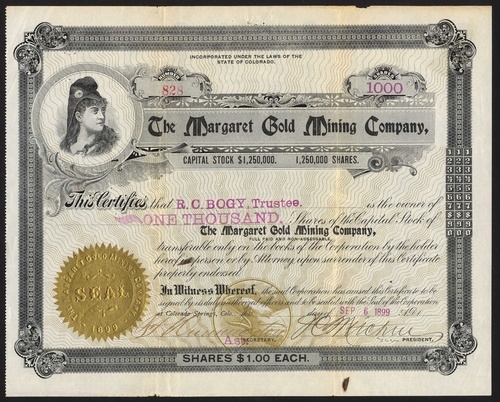 INCORPORATED UNDER THE LAWS OF THE
STATE OF COLORADO.
NUMBER
828
SHARES
1000
The Margaret Gold Mining Company,
CAPITAL STOCK $1,250,000. 1,250,000 SHARES.
This Certifies that R. C. BOGY, Trustee. is the owner of
ONE THOUSAND. Shares of the Capital Stock of
The Margaret Gold Mining Company,
FULL PAID AND NON-ASSESSABLE,
transferable only on the books of the Corporation by the holder
hereof in person or by Attorney upon surrender of this Certificate
properly endorsed.
In Witness Whereof, the said Corporation has caused this Certificate to be
signed by its duly authorized officers and to be sealed with the Seal of the Corporation
at Colorado Springs, Colo. this day of SEP 6 1899
Ass SECRETARY. PRESIDENT.
SEAL
1899
SHARES $1.00 EACH.